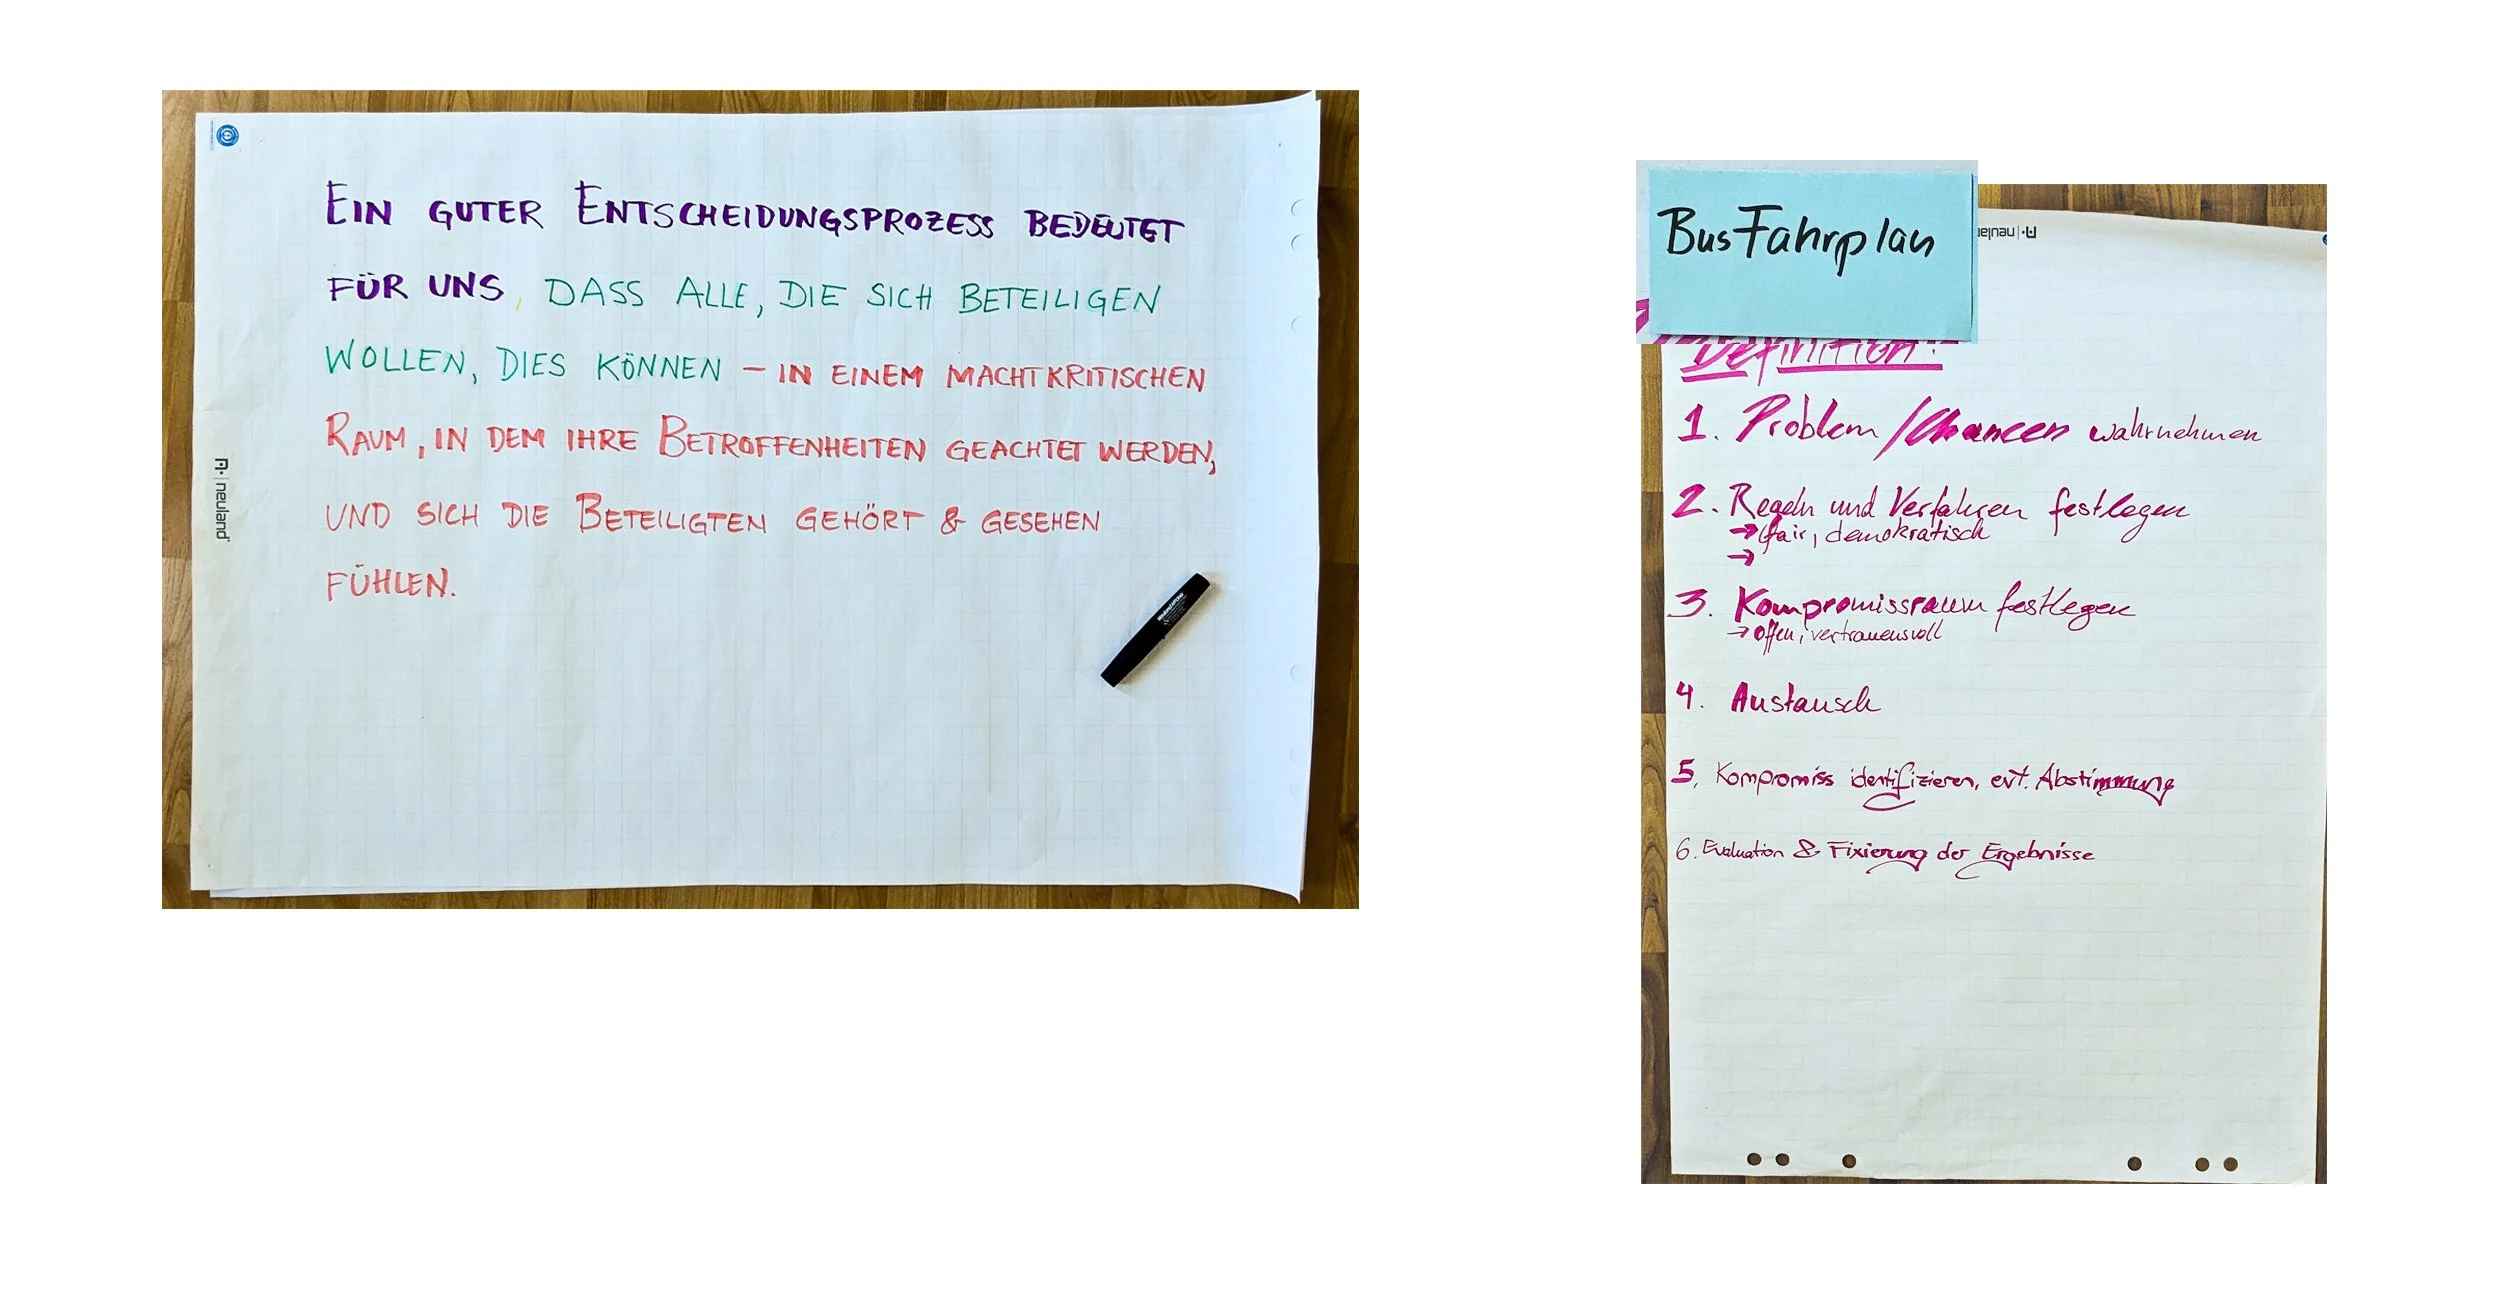 EIN GUTER ENTSCHEIDUNGSPROZESS BEDEUTET
FÜR UNS, DASS ALLE, DIE SICH BETEILIGEN
WOLLEN, DIES KÖNNEN – IN EINEM MACHTKRITISCHEN
RAUM, IN DEM IHRE BETROFFENHEITEN GEACHTET WERDEN,
UND SICH DIE BETEILIGTEN GEHÖRT & GESEHEN
FÜHLEN.
neuland
BusFahrplan
neuland
Definition:
1. Problem/Chancen wahrnehmen
2. Regeln und Verfahren festlegen
→ fair, demokratisch
→
3. Kompromissraum festlegen
→ offen, vertrauensvoll
4. Austausch
5, Kompromiss identifizieren, evt. Abstimmung
6. Evaluation & Fixierung der Ergebnisse